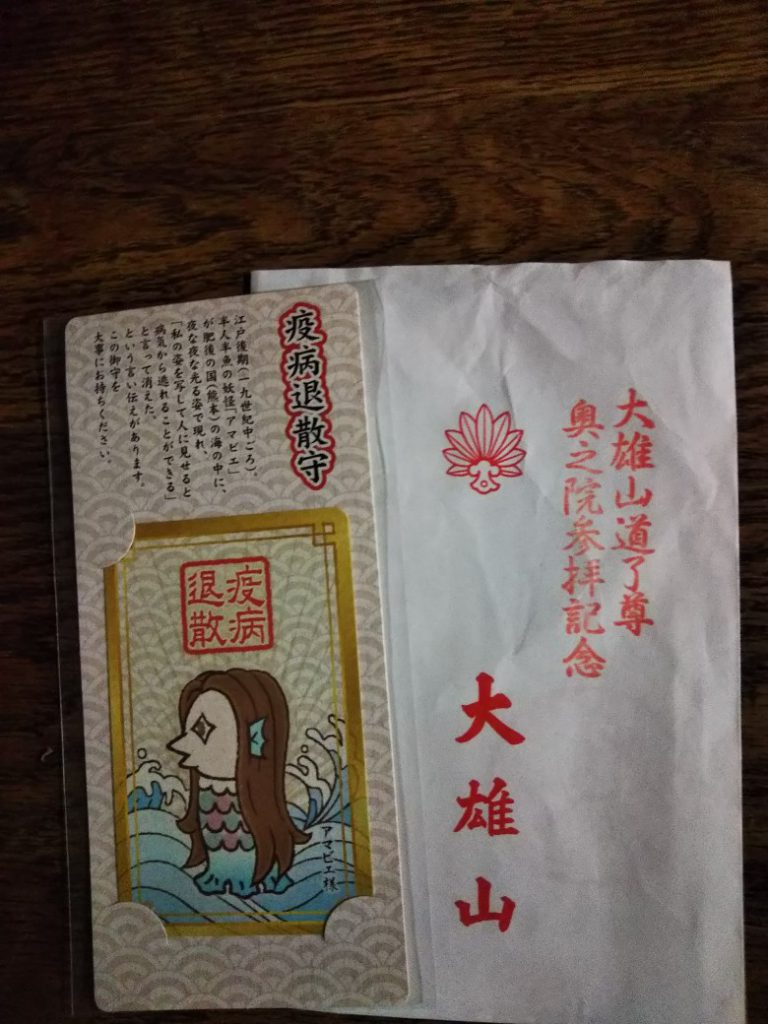 疫病退散守
江戸後期(一九世紀中ごろ)、
半人半魚の妖怪「アマビエ」
が肥後の国(熊本)の海の中に、
夜な夜な光る姿で現れ、
「私の姿を写して人に見せると
病気から逃れることができる」
と言って消えた。
という言い伝えがあります。
この御守を
大事にお持ちください。
疫病
退散
アマビエ様
大雄山道了尊
奥之院参拝記念
大雄山